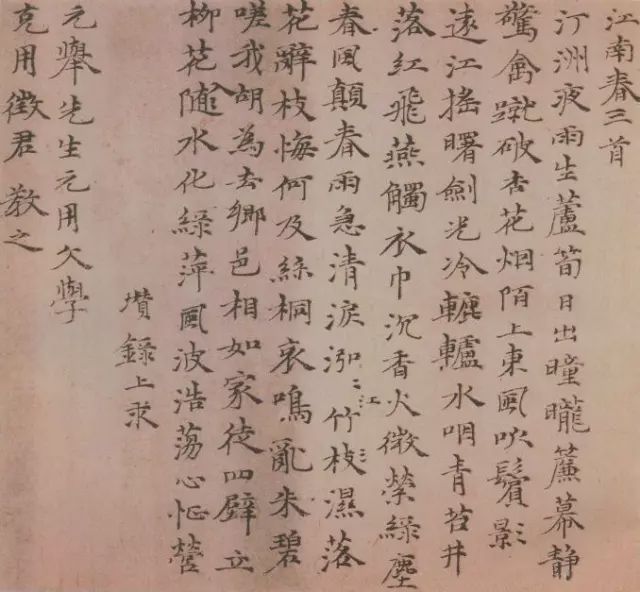 江南春三首
汀洲夜雨生蘆筍日出曈曨簾幕静
驚禽蹴破杏花烟陌上東風吹鬢影
遠江搖曙劍光冷轆轤水咽青苔井
落紅飛燕觸衣巾沉香火微縈綠塵
春風顛春雨急清淚泓〻江竹枝濕落
花辭枝悔何及絲桐哀鳴亂朱碧
嗟我胡為去鄉邑相如家徒四壁立
柳花隨水化綠萍風波浩蕩心怔營
瓚錄上求
元舉先生元用文學
克用徵君教之